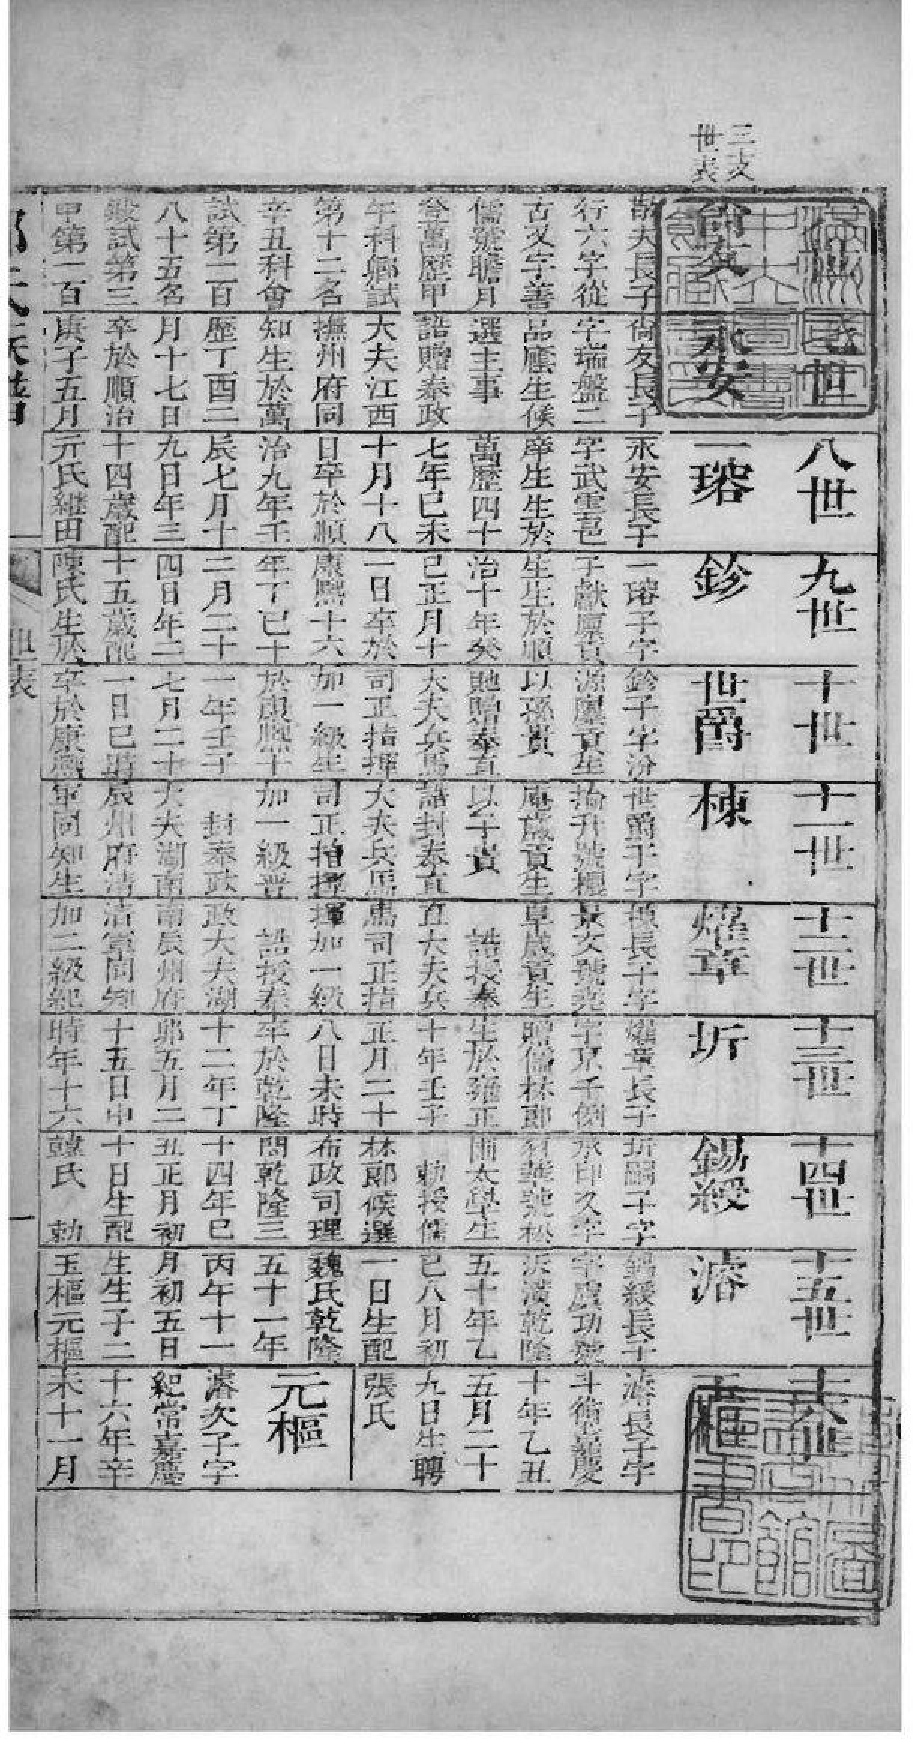 三支
世表
尚友
長子
行六字從
古又字善
儒號瞻月
登萬歷甲
午科鄉試
第十二名
辛丑科會
試第二百
八十五名
殿試第三
甲第一百
七世
永安
尚友長子
字瑞盤二
品廕生候
選主事
誥贈奉政
大夫江西
撫州府同
知生於萬
歷丁酉二
月十七日
卒於順治
庚子五月
八世
一瑢
永安長子
字武雲邑
庠生生於
萬歷四十
七年已未
十月十八
日卒於順
治九年壬
辰七月十
九日年三
十四歲配
元氏繼田
九世
鉁
一瑢子字
子獻廩貢
生生於順
治十年癸
巳正月十
一日卒於
康熙十六
年丁巳十
二月二十
四日年二
十五歲配
陳氏生於
十世
世爵
鉁子字汾
源廩貢生
以孫貴
馳贈奉直
大夫兵馬
司正指揮
加一級生
於康熙十
一年壬子
七月二十
一日巳時
卒於康熙
十一世
棟
世爵子字
掄升號檍
庵歲貢生
以子貴
誥封奉直
大夫兵馬
司正指揮
加一級晉
封奉政
大夫湖南
辰州府清
軍同知生
十二世
燿章
棟長子字
景文號堯
草歲貢生
誥授奉
直大夫兵
馬司正指
揮加一級
誥授奉
政大夫湖
南辰州府
清軍同知
加二級紀
十三世
圻
燿章長子
字京千例
贈儒林郎
生於雍正
十年壬子
正月二十
八日未時
卒於乾隆
十二年丁
卯五月二
十五日申
時年十六
十四世
錫綬
圻嗣子字
承印久字
若華號松
圃太學生
勅授儒
林郎候選
布政司理
問乾隆三
十四年巳
丑正月初
十日生配
韓氏 勅
十五世
濬
錫綬長子
字廣功號
派潢乾隆
五十年乙
巳八月初
一日生配
魏氏乾隆
五十一年
丙午十一
月初五日
生生子二
玉樞元樞
十六世
玉樞
濬長子字
斗衡嘉慶
十年乙丑
五月二十
九日生聘
張氏
元樞
濬次子字
紀常嘉慶
十六年辛
未十一月
氏族譜
世表
一